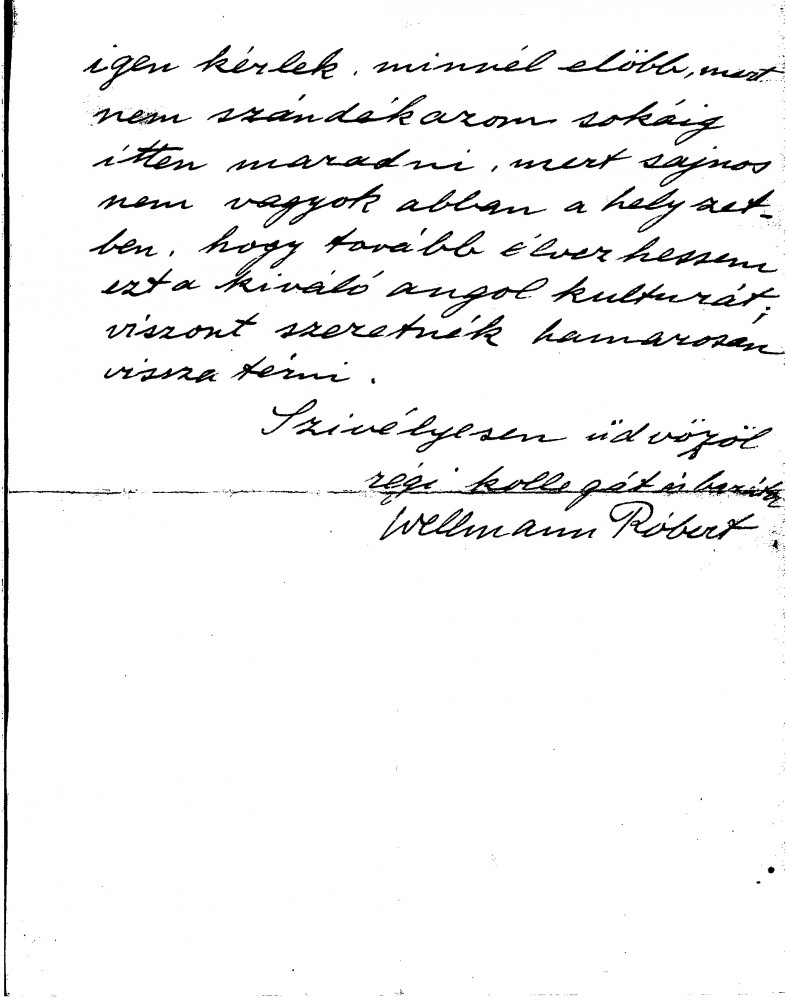 igen kérlek, minnél elöbb, mert
nem szándékazom sokáig
itten maradni, mert sajnos
nem vagyok abban a helyzet-
ben, hogy tovább élvezhessem
ezt a kiváló angol kulturát;
viszont szeretnék hamarosan
vissza térni.
Szivélyesen üdvözöl
régi kollegát és
Wellmann Róbert